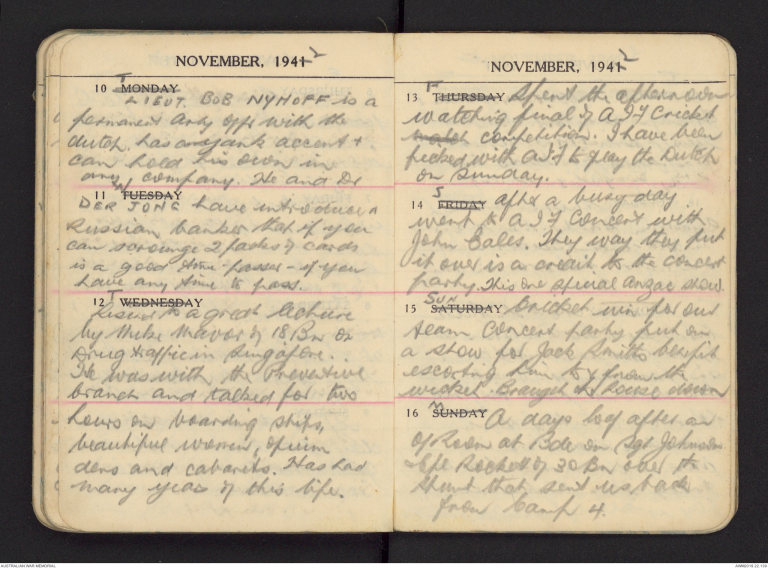 NOVEMBER, 1941 2
10 MONDAY T
LIEUT. BOB NYHOFF is a
permanent army offr with the
dutch. has a yank accent +
can hold his own in
any company. He and Dr
11 TUESDAY W
DER JONG have introduced
Russian banker that if you
can scrounge 2 packs of cards
is a good time-passer - if you
have any time to pass.
12 WEDNESDAY T
Listened to a great lecture
by Mike Mavor of 18 Bn on
Drug traffic in Singapore..
He was with the Preventive
branch and talked for two
hours on boarding ships,
beautiful women, opium
dens and cabarets. Has had
many years of this life.
NOVEMBER, 1941 2
13 THURSDAY F Spent the afternoon
watching final of A.I.F Cricket
match competition. I have been
picked with A.I.F to play the Dutch
on Sunday.
14 FRIDAY S after a busy day
went to A.I.F Concert with
John Eales. They way they put
it over is a credit to the concert
party. This one special Anzac show.
15 SATURDAY Sun Cricket win for our
team. Concert party put on
a show for Jack Smiths benefit
escorting him to & from the
wicket. Brought the house down
16 SUNDAY M A days log after an
O/Room at Bde on Sgt Johnson
& Cpl Rockett of 30 Bn over the
stunt that sent us back
from Camp 4.
AUSTRALIAN WAR MEMORIAL